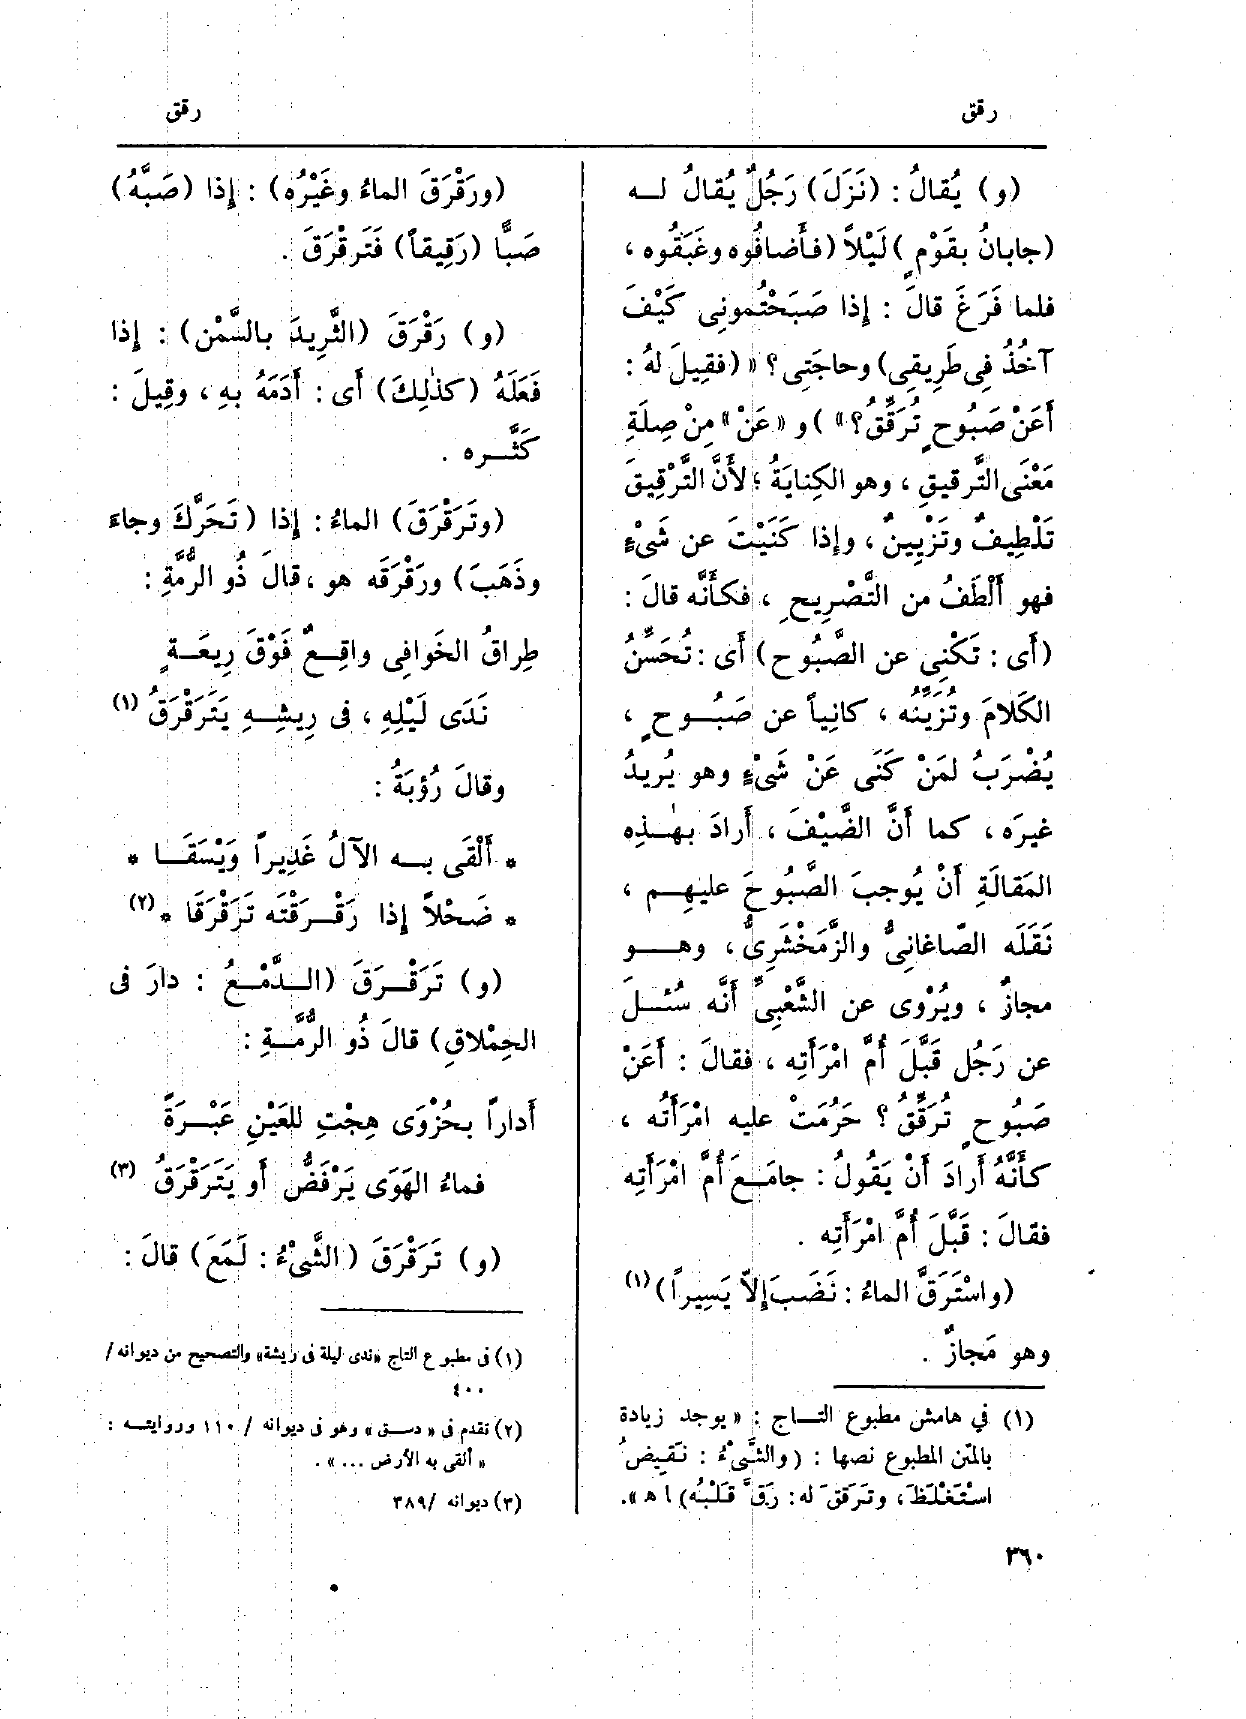 رقق
رقق
(و) يُقالُ : (نَزَلَ) رَجُلٌ يُقالُ لـه
(جابانُ بقَوْمٍ) لَيْلاً (فأَضافُوه وغَبَقُوه ،
فلما فَرَغَ قالَ : إذا صَبَحْتُمونِى كَيْفَ
آخُذُ فِى طَرِيقِى) وحاجَتِى؟ » (فقِيلَ لهُ :
أَعَنْ صَبُوحٍ تُرَقِّقُ؟» ) و «عَنْ» مِنْ صِلَةِ
مَعْنَى التَّرقيقِ ، وهو الكِنايَةُ ؛ لأَنَّ التَّرْقِيقَ
تَلْطِيفٌ وتَزْيِينٌ ، وإذا كَنَيْتَ عن شَىْءٍ
فهو أَلْطَفُ من التَّصْرِيحِ ، فكأَنَّه قالَ :
(أَى : تَكْنِى عن الصَّبُوحِ) أَى : تُحَسِّنُ
الكَلامَ وتُزَيِّنُه ، كانِياً عن صَبُـوحٍ ،
يُضْرَبُ لمَنْ كَنَى عَنْ شَىْءٍ وهو يُرِيدُ
غيرَه ، كما أَنَّ الضَّيْفَ ، أَرادَ بهٰـذِه
المَقالَةِ أَنْ يُوجِبَ الصَّبُوحَ عليهـم ،
نَقَلَه الصّاغانِىُّ والزَّمَخْشَرِىُّ ، وهـو
مجازٌ ، ويُرْوى عن الشَّعْبِىِّ أَنَّه سُئـلَ
عن رَجُل قَبَّلَ أُمَّ امْرَأَتِه ، فقالَ : أَعَنْ
صَبُوحٍ تُرَقِّقُ ؟ حَرُمَتْ عليه امْرَأَتُه ،
كأَنَّهُ أَرادَ أَنْ يَقُولُ : جامَـعَ أُمَّ امْرَأَتِه
فقالَ : قَبَّلَ أُمَّ امْرَأَتِه .
(واسْتَرَقَّ الماءُ : نَضَبَ إلاّ يَسِيراً) (١)
وهو مَجازٌ .
(١) في هامش مطبوع التـاج : « يوجد زيادة
بالمتن المطبوع نصها : (والشَّىْءُ : نَقِيضُ
اسْتَغْلَظَ، وتَرَقَّقَ له: رَقَّ قَلْبُه) اهـ ».
٣٦٠
(ورَقْرَقَ الماءَ وغَيْرَه) : إذا (صَبَّهُ)
صَبًّا (رَقِيقاً) فَتَرقْرَقَ .
(و) رَقْرَقَ (الثَّرِيدَ بالسَّمْن) : إذا
فَعَلَهُ (كذٰلِكَ) أَى : أَدَمَهُ بهِ ، وقِيلَ :
كَثَّـره .
(وتَرَقْرَقَ) الماءُ : إذا (تَحَرَّكَ وجاءَ
وذَهَبَ) ورَقْرَقَه هو ، قالَ ذُو الرُّمَّةِ :
طِراقُ الخَوافِى واقِـعٌ فَوْقَ رِيعَـةٍ
نَدَى لَيْلِهِ ، فى رِيشِـهِ يَتَرَقْرَقُ (١)
وقالَ رُؤبَةُ :
* أَلْقَى بـه الآلُ غَدِيراً وَيْسَقَـا *
* ضَحْلاً إذا رَقْـرَقْتَه تَرَقْرَقَا * (٢)
(و) تَرَقْـرَقَ (الـدَّمْـعُ : دارَ فى
الحِمْلاقِ) قالَ ذُو الرُّمَّـةِ :
أَداراً بحُزْوَى هِجْتِ للعَيْنِ عَبْـرَةً
فماءُ الهَوَى يَرْفَضُّ أو يَتَرَقْرَقُ (٣)
(و) تَرَقْرَقَ (الشَّىْءُ : لَمَعَ) قالَ :
(١) فى مطبوع التاج «ندى ليلة فى ريشة» والتصحيح من ديوانه/
٤٠٠
(٢) تقدم فى « دسـق » وهو فى ديوانه / ١١٠ وروايتـه :
« ألقى به الأرض ... » .
(٣) ديوانه /٣٨٩